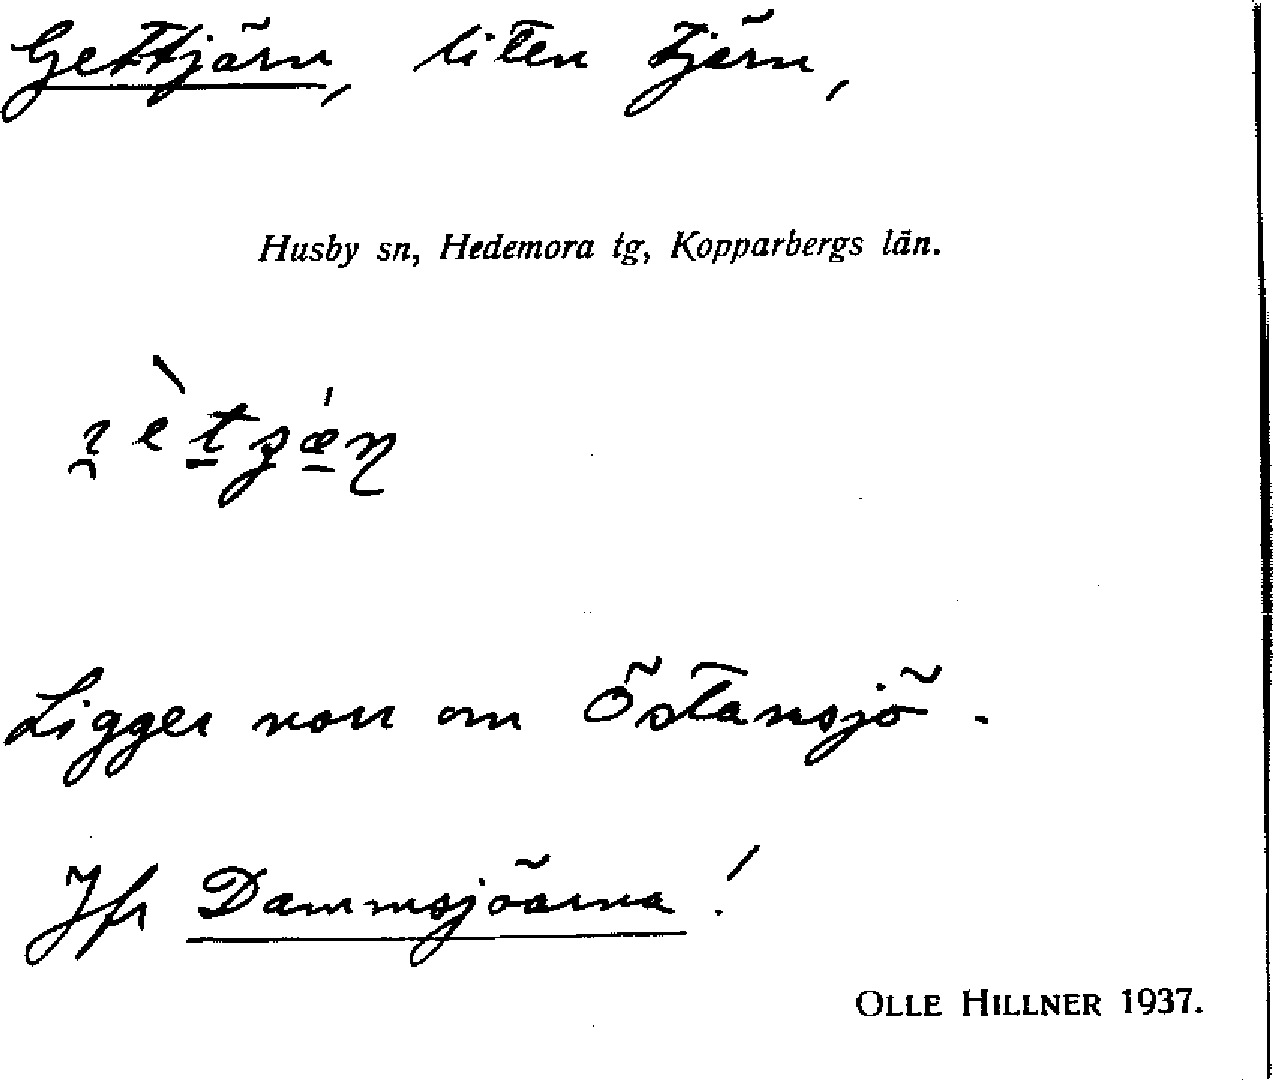 Gettjärn, liten tjärn,
Husby sn, Hedemora tg, Kopparbergs län.
Ligger norr om Östansjö.
Jfr Dammsjöarna!
OLLE HILLNER 1937.